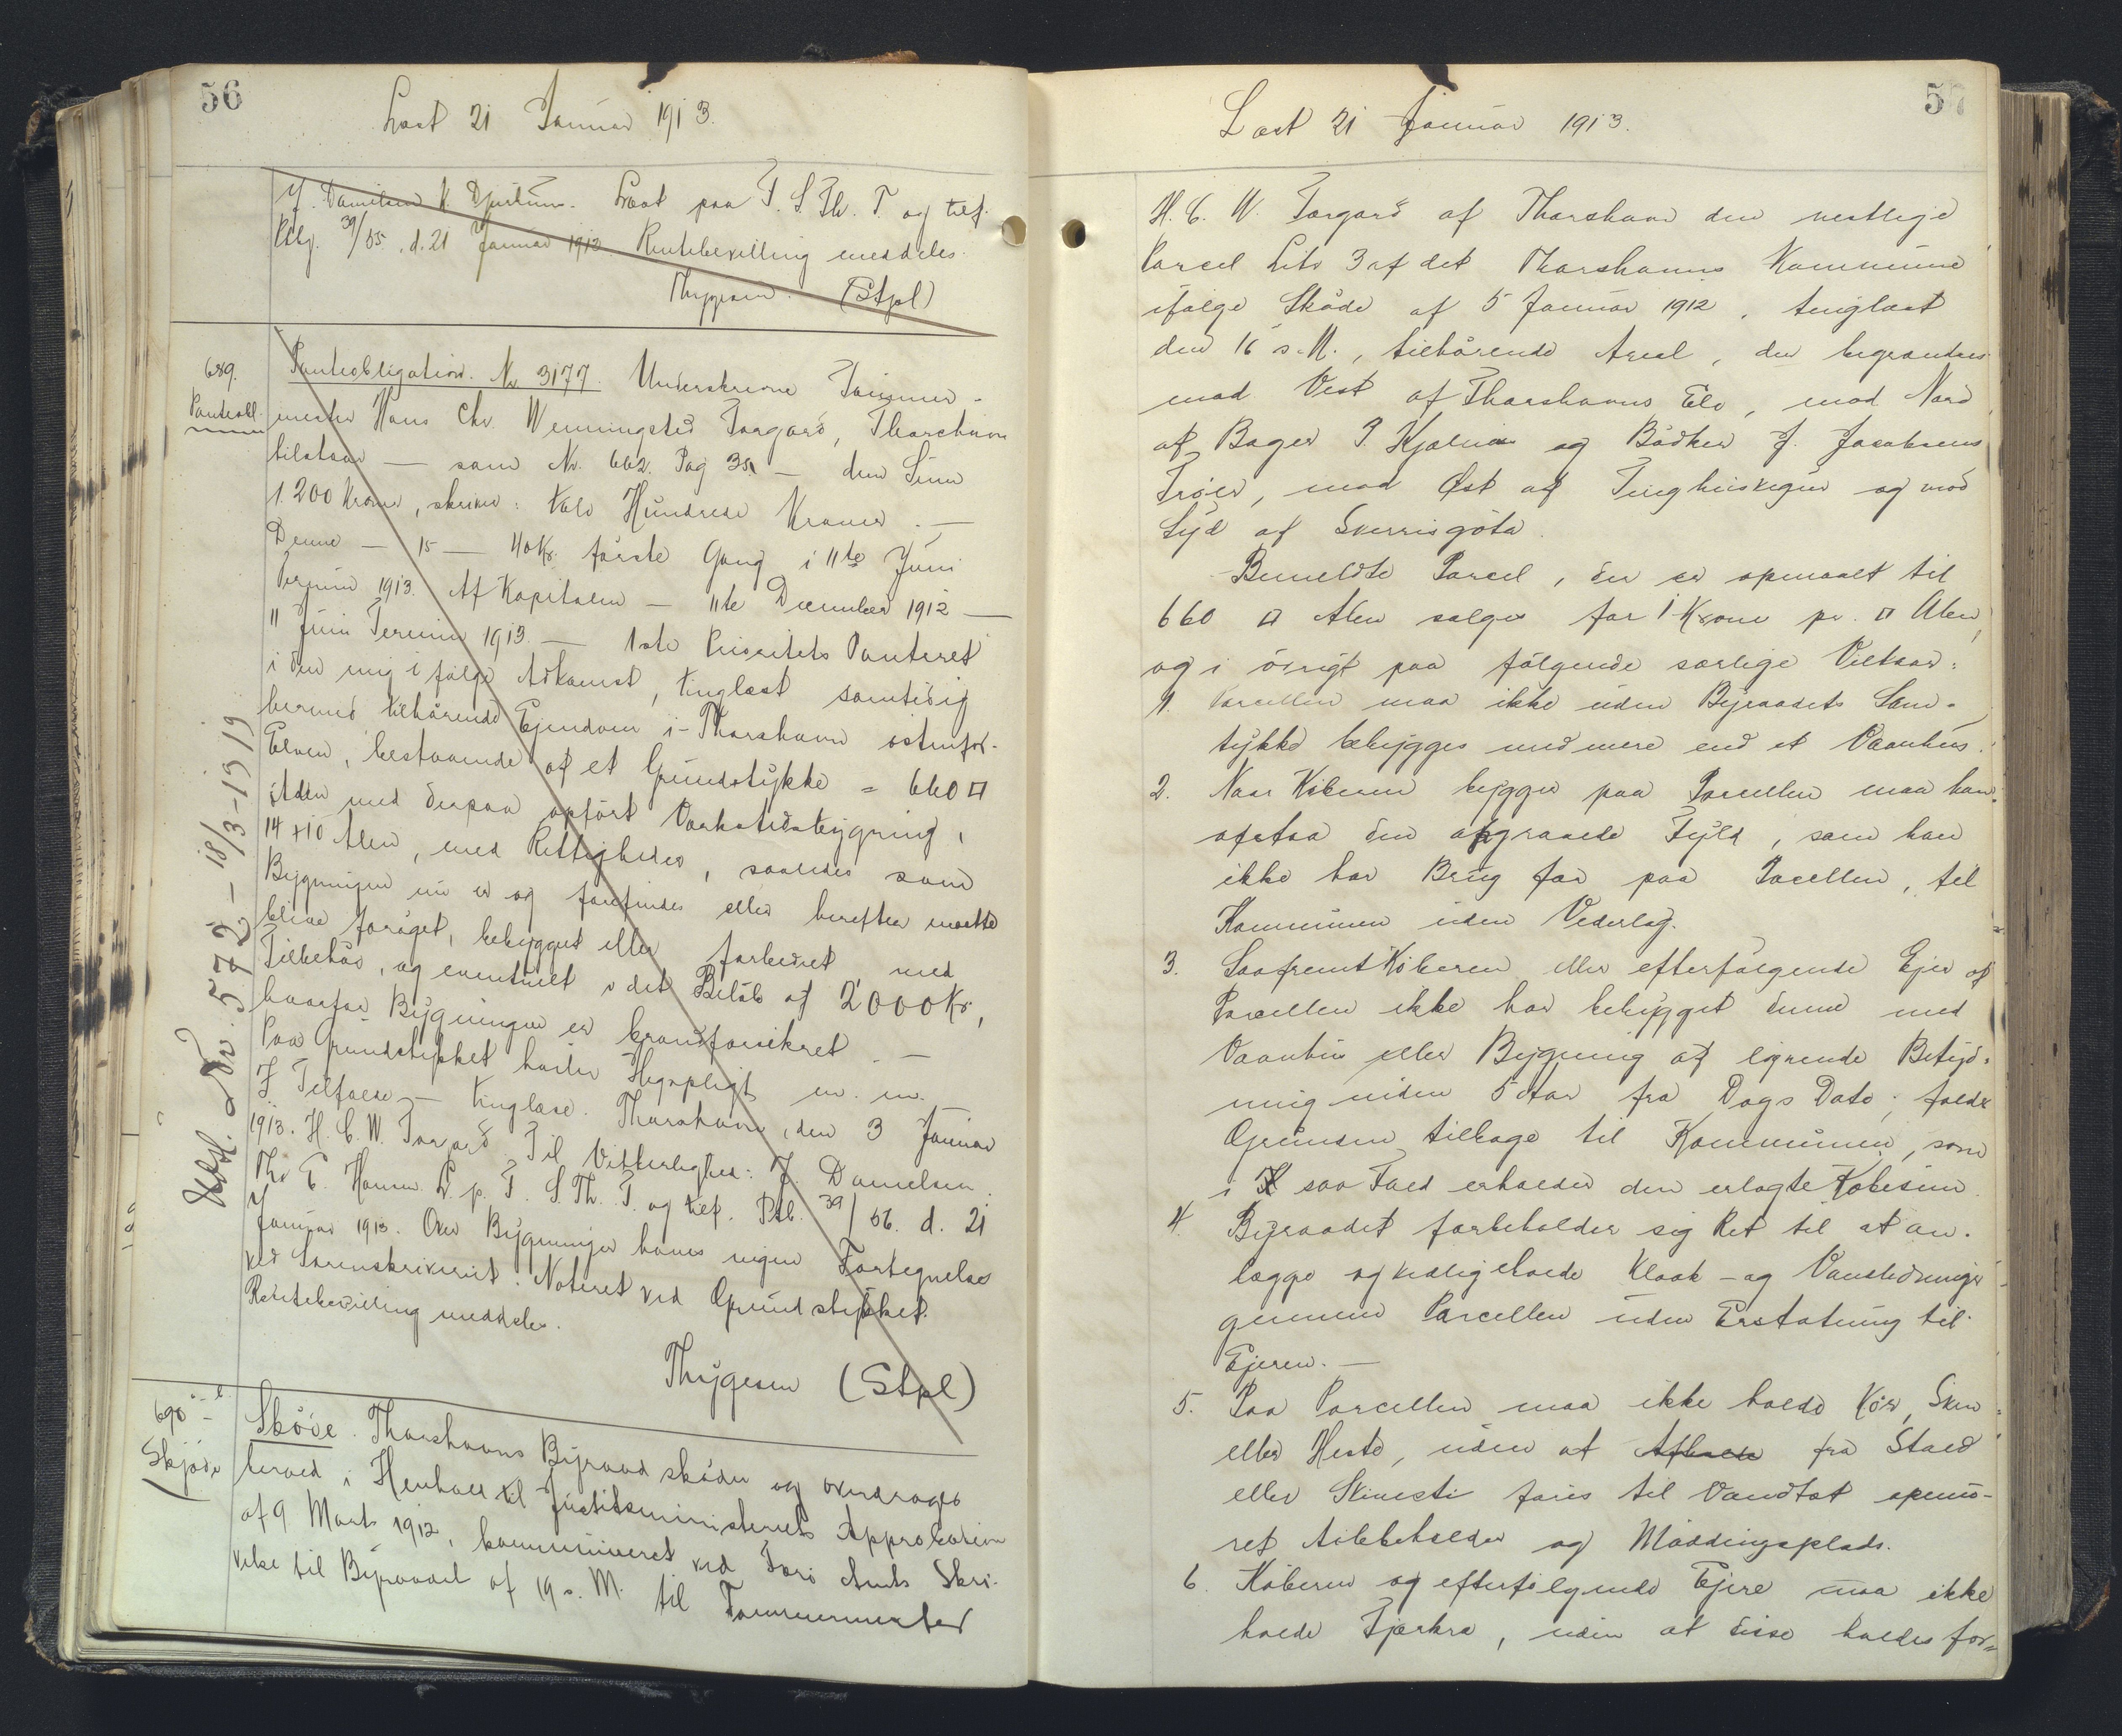 56
Læst 21 Januar 1913.
J. Danielsen K. Djurhuus. Læst paa T. S. Th. T. og tilf.
Rbg. 39/55. d. 21 Januar 1913. Rentebevilling meddeles.
Thygesen. (Stpl)
689.
Panteobl.
Panteobligation. No 3177. Underskrevne Tømmer-
mester Hans Chr. Wenningsted Torgarð, Thorshavn
tilstaar — som Nr. 662. Pag 35 — den Sum
1.200 Kroner, skriver: Tolv Hundrede Kroner. —
Denne — 15 — 40 Kr. første Gang i 11te Juni
Termin 1913. Af Kapitalen — 11te December 1912 —
11 Juni Termin 1913. — 1ste Prioritets Panteret
i den mig ifølge Adkomst, tinglæst samtidig
hermed tilhørende Ejendom i Thorshavn østenfor
Elven, bestaaende af et Grundstykke = 660 □
Alen med derpaa opført Værkstedsbygning,
14 x 10 Alen, med Rettigheder, saaledes som
Bygningen nu er og forefindes eller herefter maatte
blive forøget, bebygget eller forbedret med
Tilbehør, og eventuelt i det Beløb af 2000 Kr,
hvorfor Bygningen er brandforsikret. —
Paa Grundstykket hviler Hegnpligt m. m.
I Tilfælde — tinglæse. Thorshavn, den 3 Januar
1913. H. C. W. Torgarð. Til Vitterlighed: J. Danielsen.
Th. E. Hansen. L. p. T. S. Th. T. og tilf. Ptb. 39/56. d. 21
Januar 1913. Over Bygninger haves ingen Fortegnelse
ved Sorenskriveriet. Noteret ved Grundstykket.
Rentebevilling meddeles.
Thygesen (Stpl)
Udsl. Nr. 572 – 18/3-1919
690
Skjøde
Skøde. Thorshavns Byraad skøder og overdrager
herved i Henhold til Justitsministeriets Approbation
af 9 Marts 1912, kommuniceret ved Færø Amts Skri-
velse til Byraadet af 19 s. M. til Tømmermester
57
Læst 21 Januar 1913.
H. C. W. Torgarð af Thorshavn den vestlige
Parcel Litr 3 af det Thorshavns Kommune
ifølge Skøde af 5 Januar 1912, tinglæst
den 16 s. M., tilhørende Areal, der begrændses
mod Vest af Thorshavns Elv, mod Nord
af Bager P. Kjølbro og Bødker J. Jacobsens
Trøer, mod Øst af Tinghusvegur og mod
Syd af Sverrisgøta.
Bemeldte Parcel, der er opmaalt til
660 □ Alen sælges for 1 Krone pr. □ Alen,
og i øvrigt paa følgende særlige Vilkaar:
1. Parcellen maa ikke uden Byraadets Sam-
tykke bebygges med mere end et Vaanhus.
2. Naar Køberen bygger paa Parcellen maa han
afstaa den opgravede Fyld, som han
ikke har Brug for paa Parcellen, til
Kommunen uden Vederlag.
3. Saafremt Køberen eller efterfølgende Ejer af
Parcellen ikke har bebygget denne med
Vaanhus eller Bygning af lignende Betyd-
ning inden 5 Aar fra Dags Dato, falder
Grunden tilbage til Kommunen, som
i saa Fald erholder den erlagte Købesum.
4. Byraadet forbeholder sig Ret til at an-
lægge og vedligeholde Kloak - og Vandledninger
gennem Parcellen uden Erstatning til
Ejeren. —
5. Paa Parcellen maa ikke holde Køer, Svin
eller Heste, uden at Afløb fra Stald
eller Svinesti føres til Vandtæt opmu-
ret Ajlebeholder og Møddingsplads.
6. Køberen og efterfølgende Ejere maa ikke
holde Fjerkræ, uden at disse holdes for-